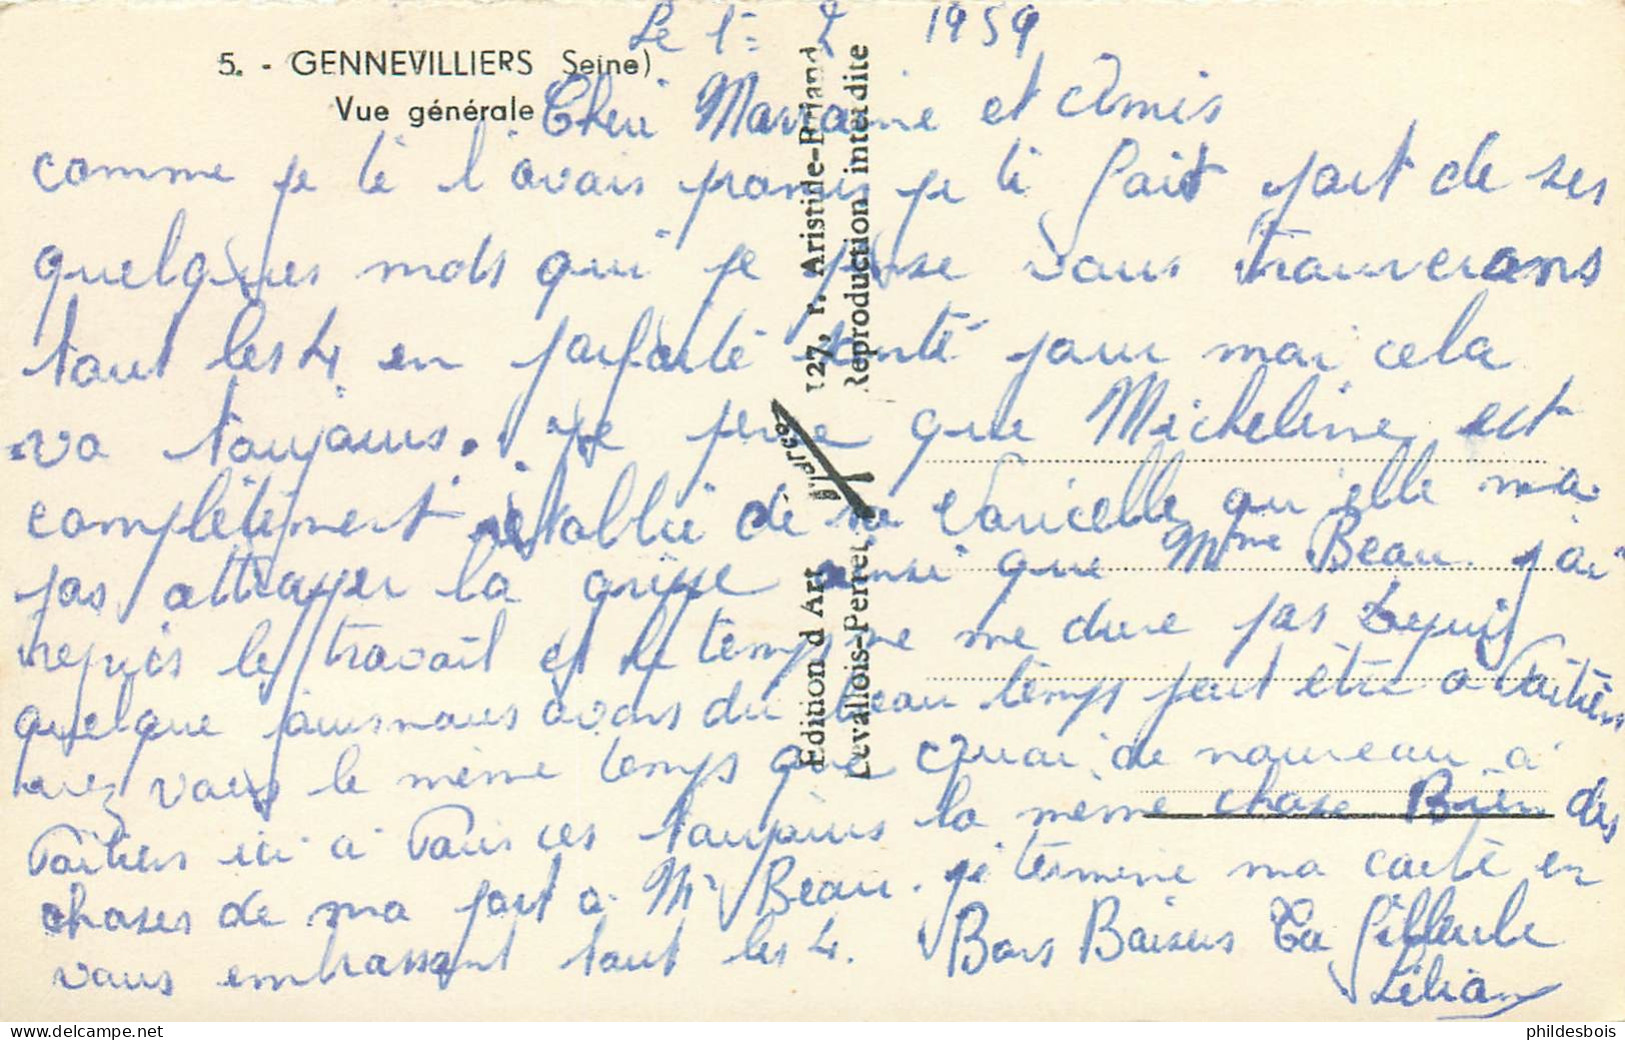 Le 1= 2 1959
5. - GENNEVILLIERS Seine)
Vue générale
Cheri Marraine et Amis
comme je te l'avais promis je te fait part de ses
quelques mots qui je pense vous trouverons
tout les 4 en parfaite santé pour moi cela
va toujours. Je pense que Micheline est
complètement rétablie de sa varicelle qu'elle m'a
pas attraper la grippe ainsi que Mme Beau. j'ai
repris le travail et le temps ne me dure pas Depuis
quelque jours nous avons du beau temps peut être a Poitiers
avez vous le même temps que quoi de nouveau a
Poitiers ici a Paris ces toujours la meme chose Bien des
choses de ma part a Mr Beau. je termine ma carte en
vous embrassant tout les 4. Bons Baisers Ta filleule
Lilian
Edition d'Art 127, r. Aristide-Briand
Levallois-Perret Reproduction interdite
phildesbois